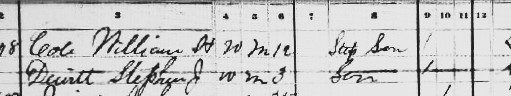 2 3 4 5 6 7 8 9 10 11 12
98 Cole William H W M 12 Step Son 1
Dewitt Stephen J W M 3 Son 1